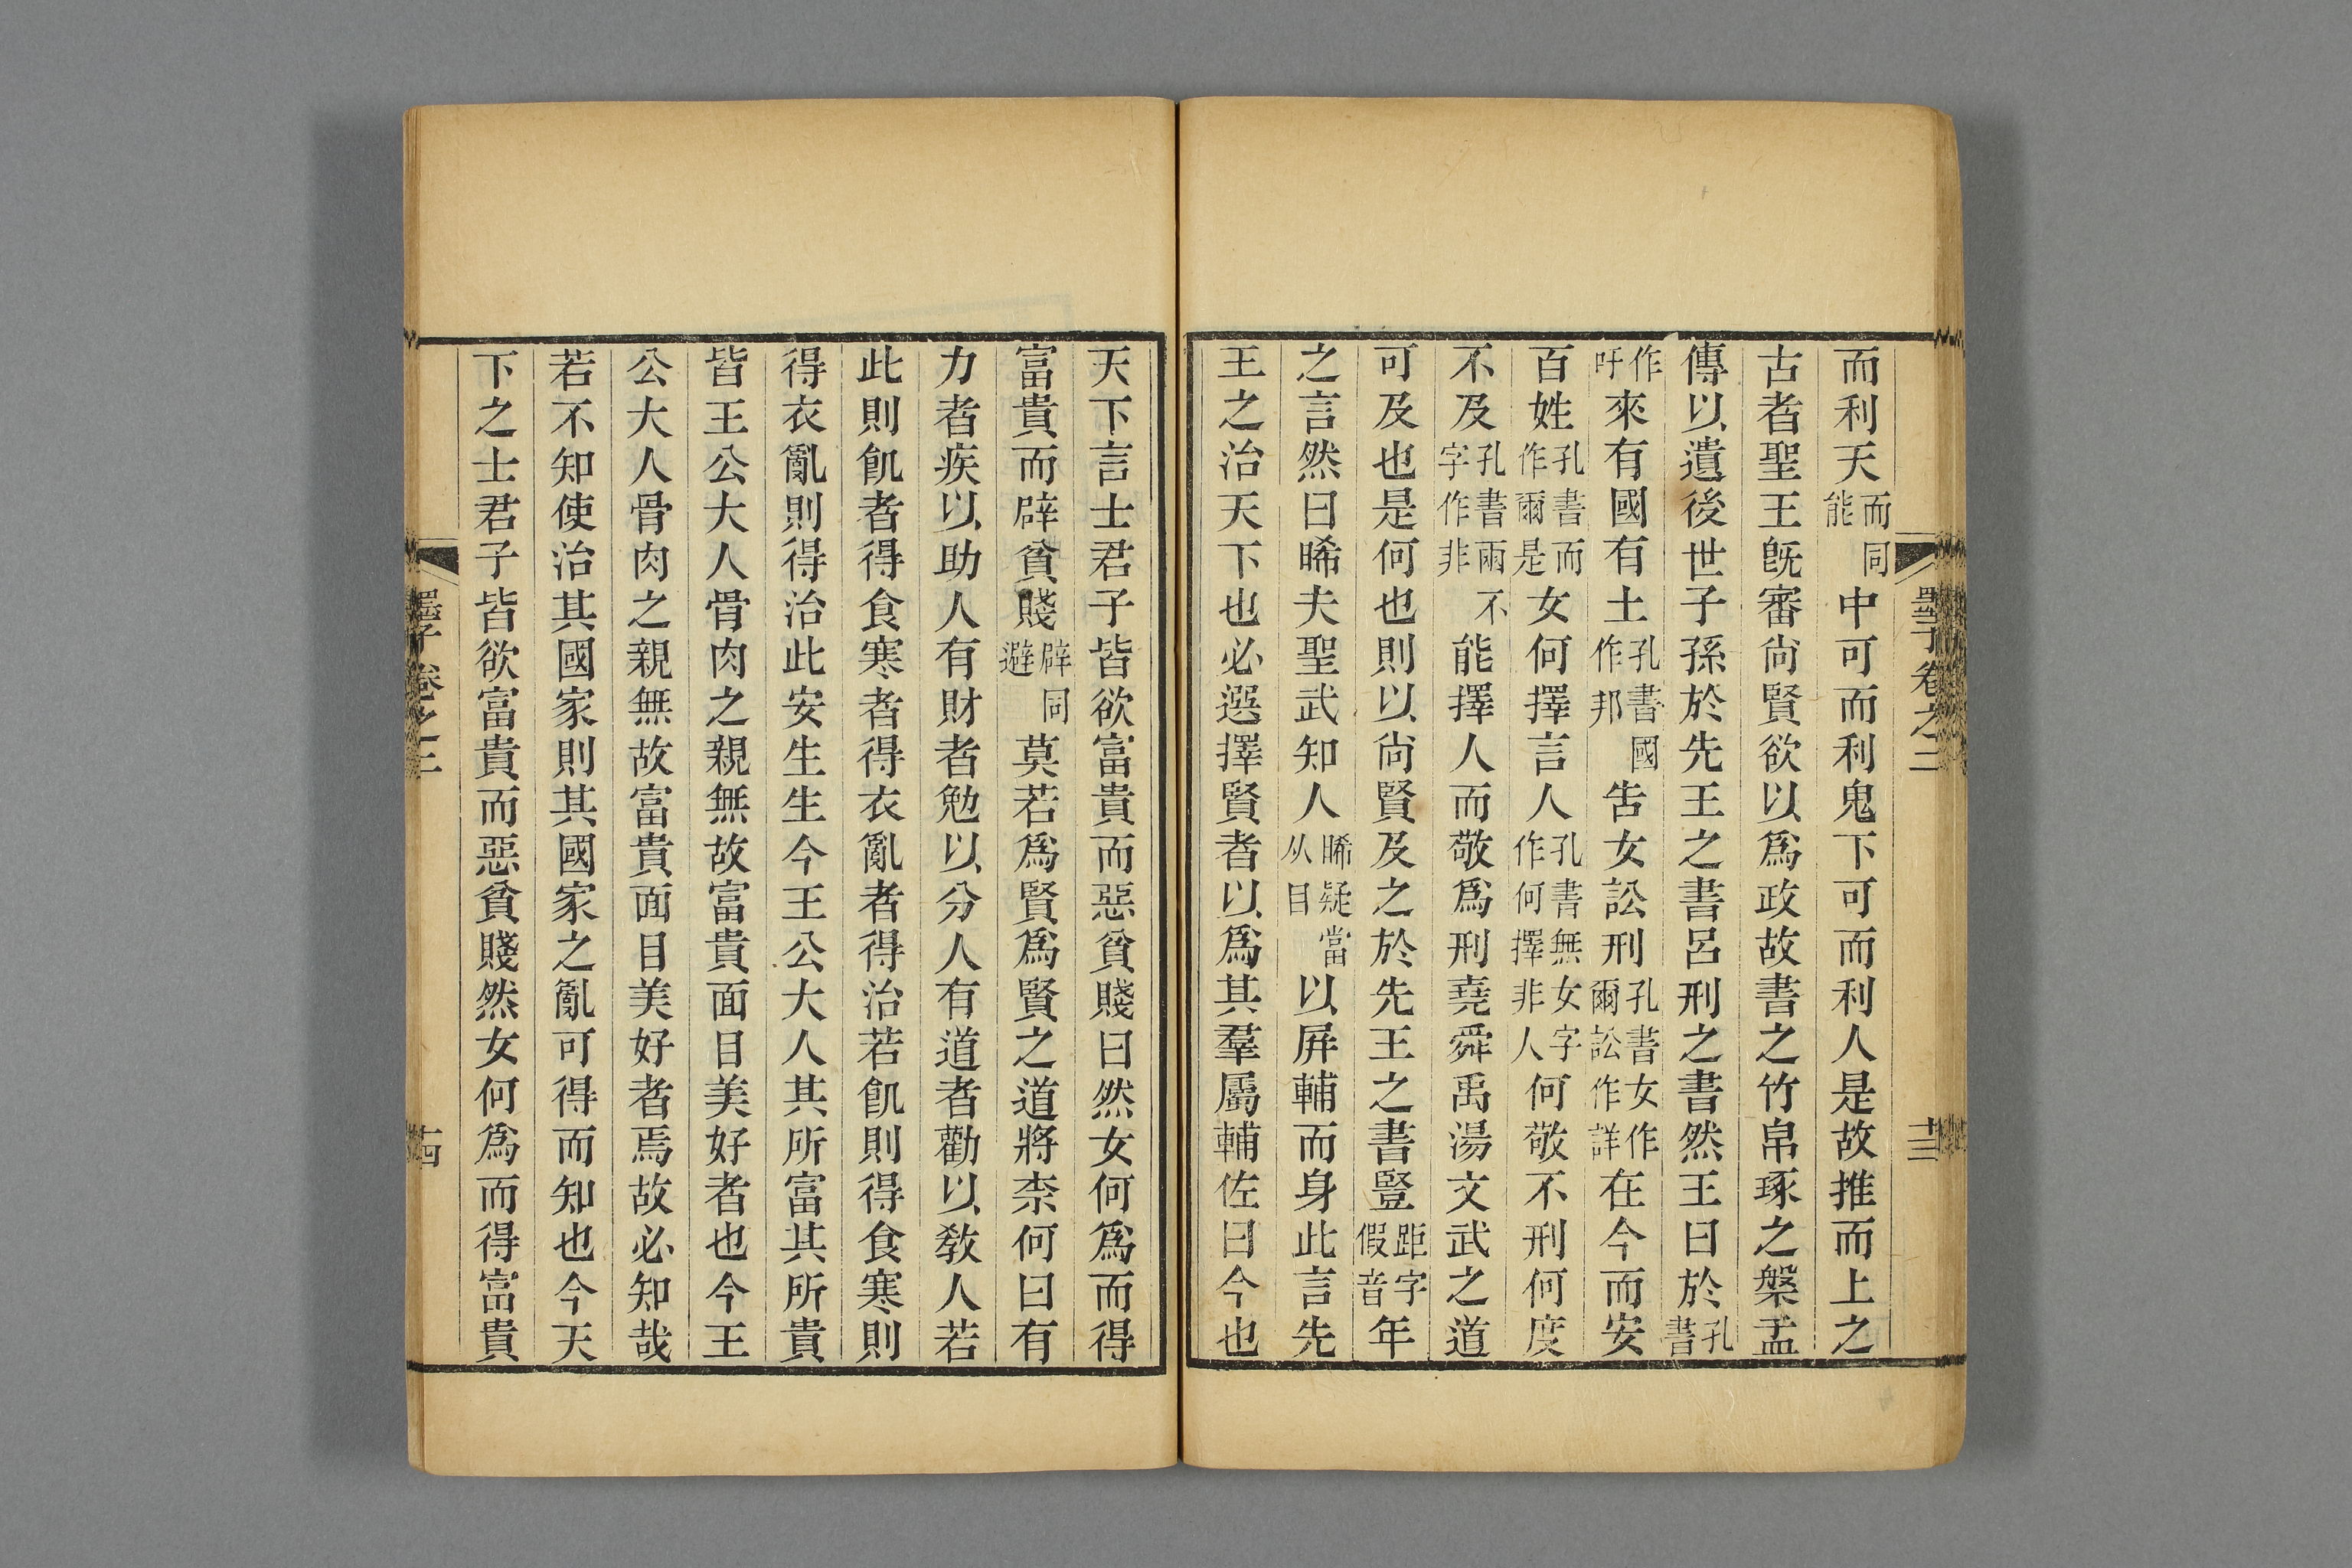 而利天而同能中可而利鬼下可而利人是故推而上之
古者聖王既審尚賢欲以爲政故書之竹帛琢之槃盂
傳以遺後世子孫於先王之書呂刑之書然王曰於孔書
作吁來有國有土孔書國作邦告女訟刑孔書女作爾訟作詳在今而安
百姓孔書而作爾是女何擇言人孔書無女字作何擇非人何敬不刑何度
不及孔書兩不字作非能擇人而敬爲刑堯舜禹湯文武之道
可及也是何也則以尚賢及之於先王之書豎距字假音年
之言然曰晞夫聖武知人晞疑當从目以屏輔而身此言先
王之治天下也必選擇賢者以爲其羣屬輔佐曰今也
墨子卷之二
十三
天下言士君子皆欲富貴而惡貧賤曰然女何爲而得
富貴而辟貧賤辟同避莫若爲賢爲賢之道將柰何曰有
力者疾以助人有財者勉以分人有道者勸以教人若
此則飢者得食寒者得衣亂者得治若飢則得食寒則
得衣亂則得治此安生生今王公大人其所富其所貴
皆王公大人骨肉之親無故富貴面目美好者也今王
公大人骨肉之親無故富貴面目美好者焉故必知哉
若不知使治其國家則其國家之亂可得而知也今天
下之士君子皆欲富貴而惡貧賤然女何爲而得富貴
墨子卷之二
十四